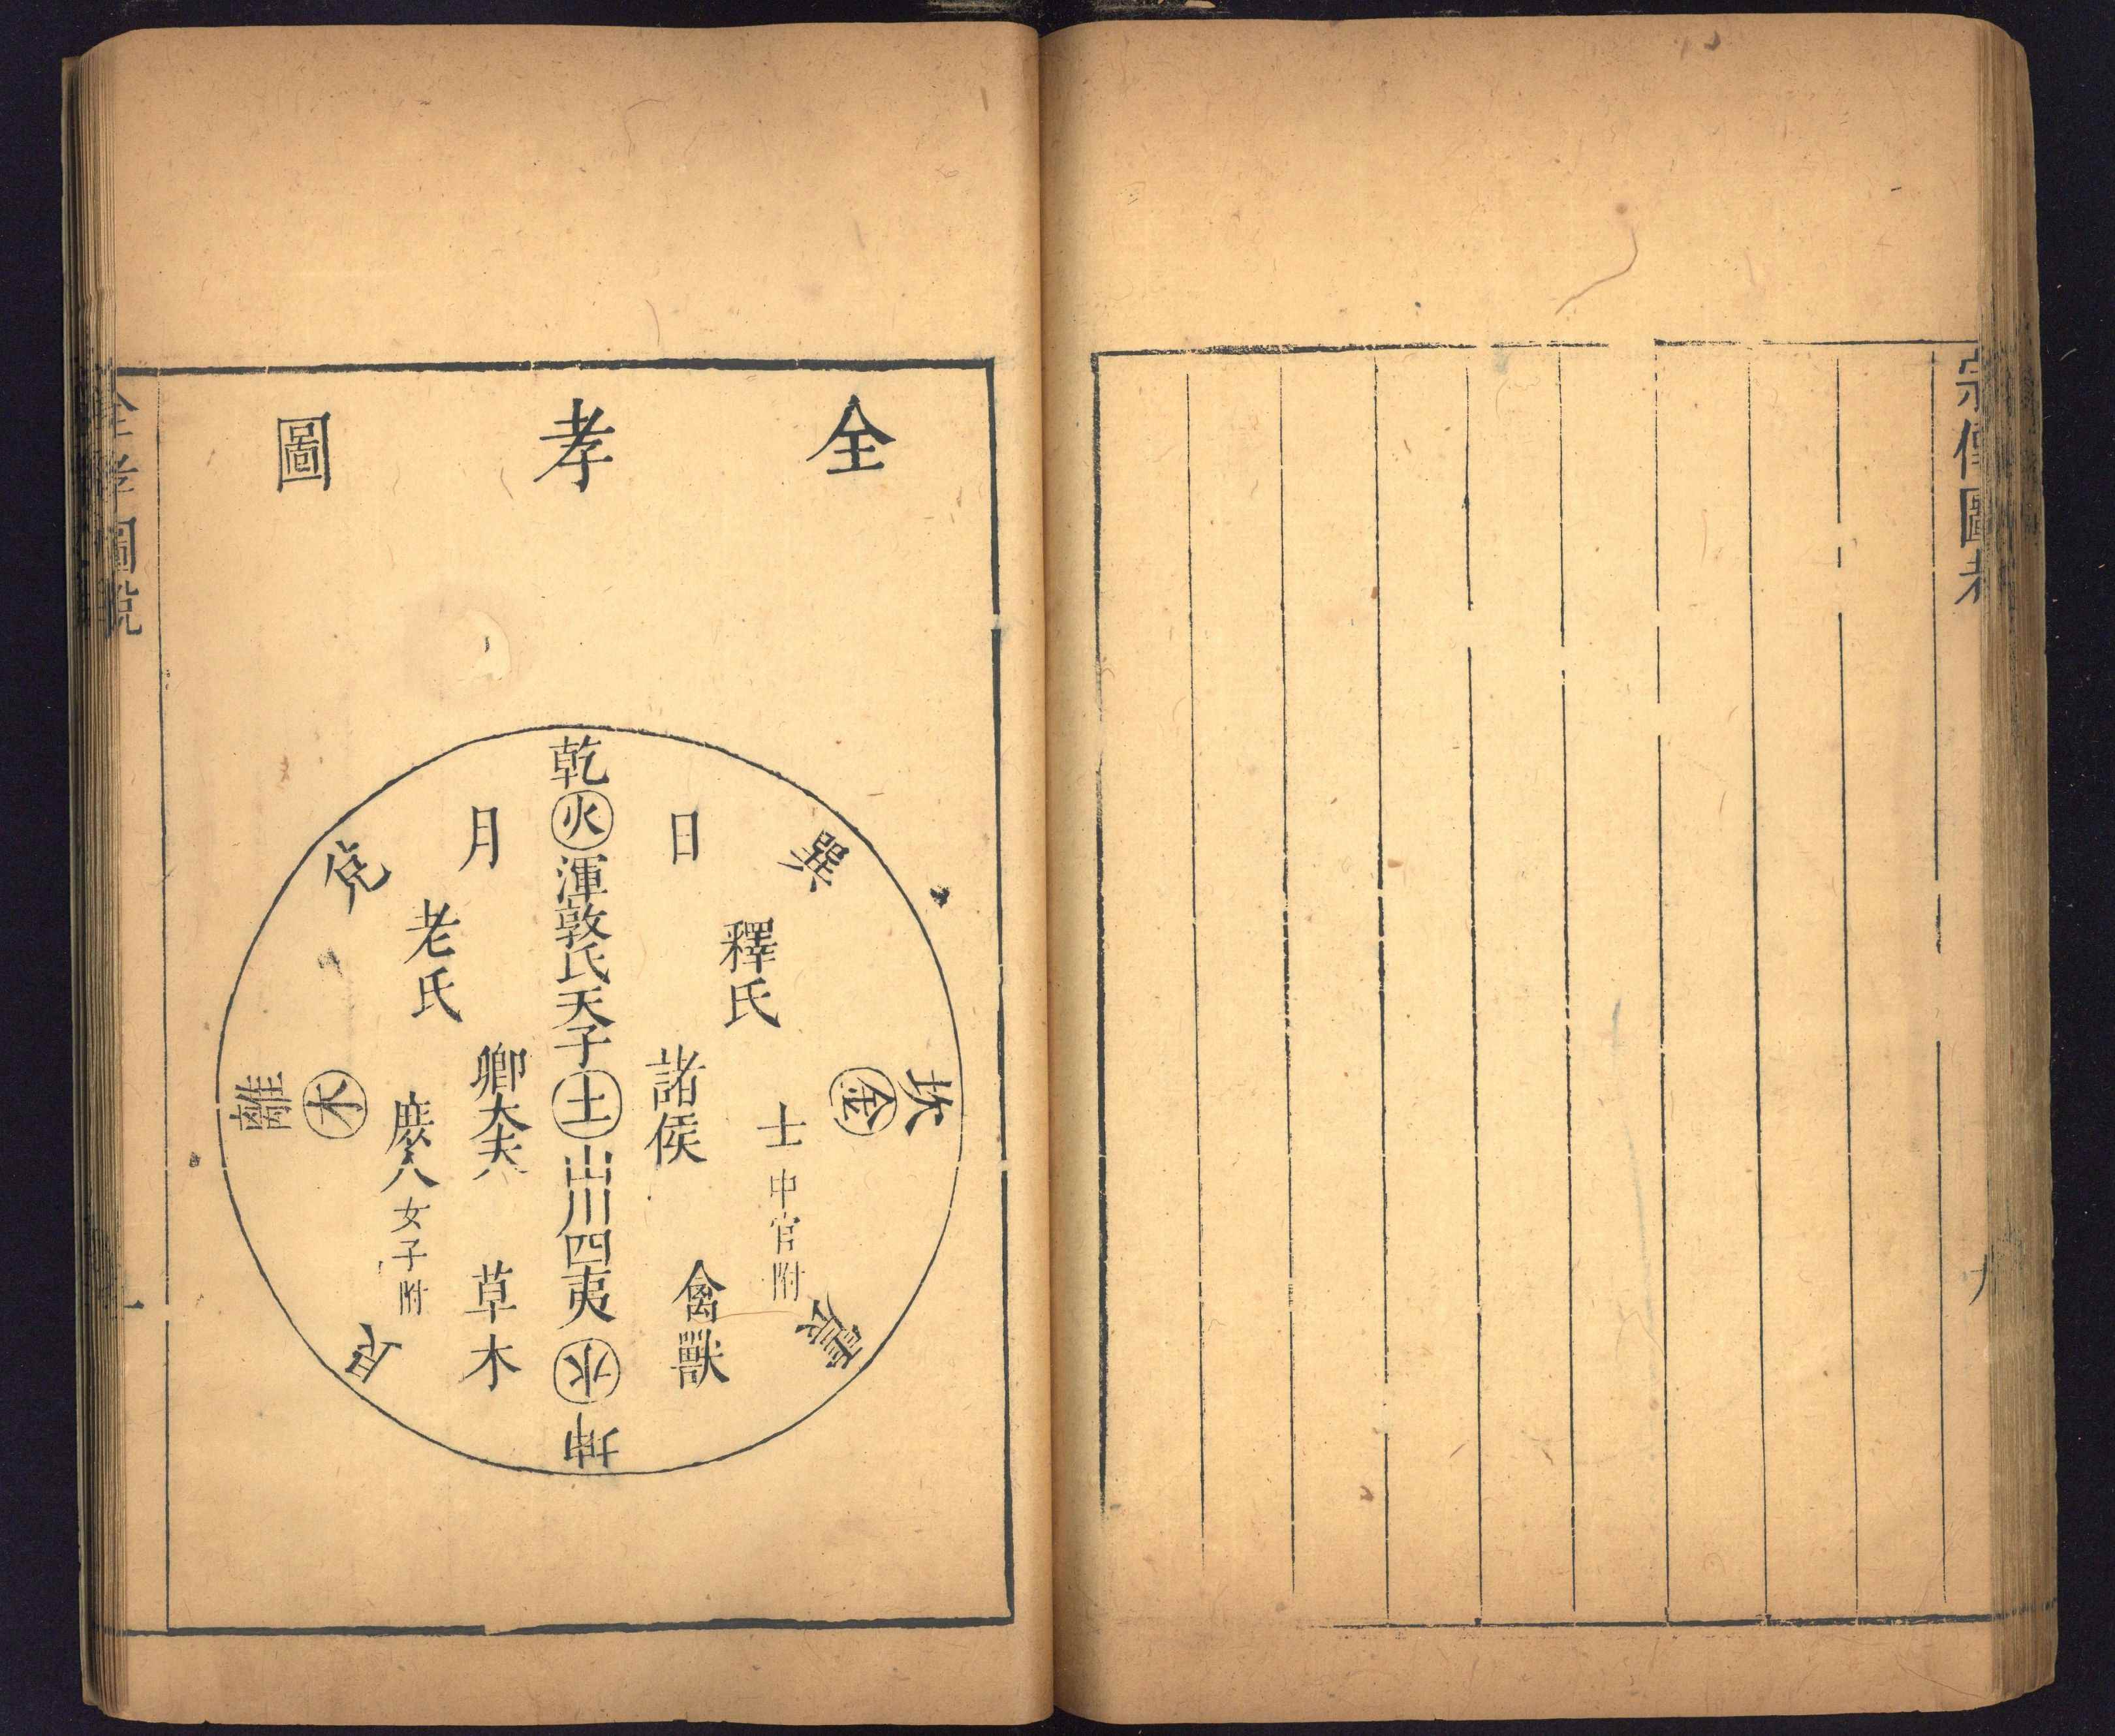 宗傳圖考
九
全孝圖
乾
火
渾敦氏天子
土
山川四夷
水
坤
日
月
巽
兌
釋氏
老氏
坎
金
離
木
諸侯
卿大夫
士中官附
庶人女子附
禽獸
草木
震
艮
全孝圖說
一